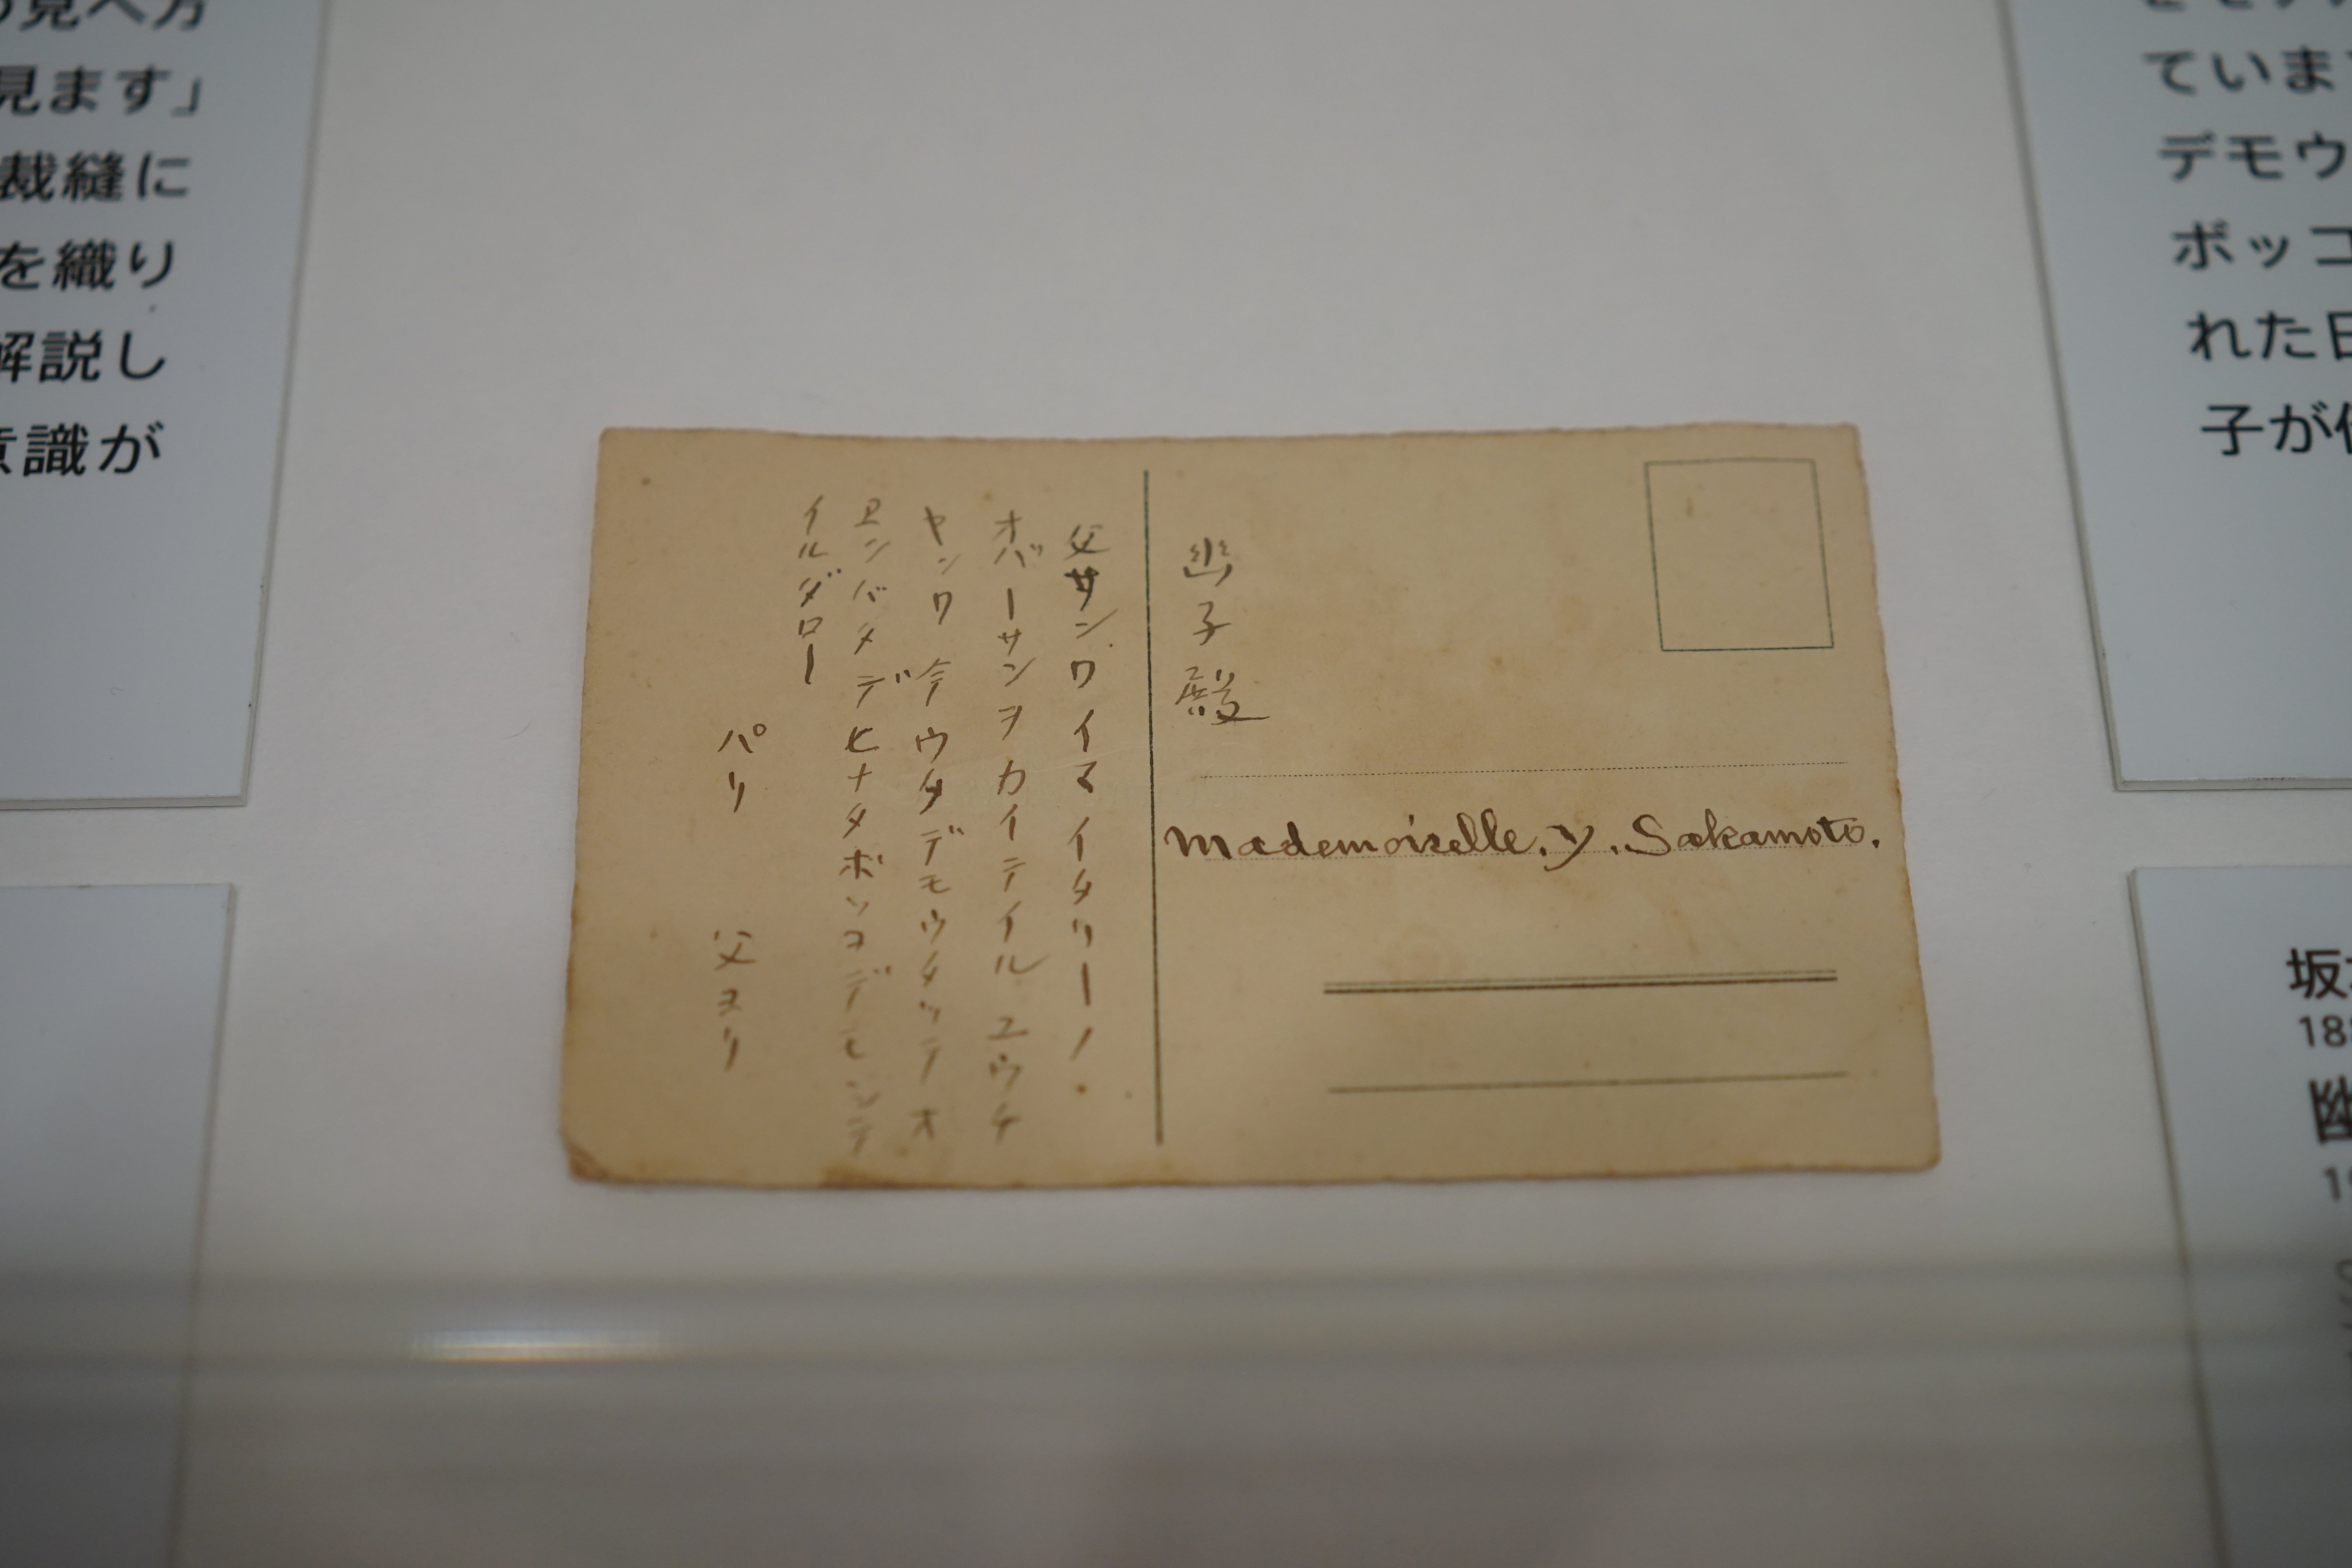 見へ方
見ます」
裁縫に
を織り
解説し
意識が
幽子殿
Mademoiselle. Y. Sakamoto.
父サンワイマイタリーノ.
オバーサンヲカイテイル ユウチ
ヤンワ 今ウタデモウタッテオ
エンバタデヒナタボッコデモシテ
イルダロー
パリ 父ヨリ
ていま
デモウ
ボッコ
れた日
子が
坂
18
幽